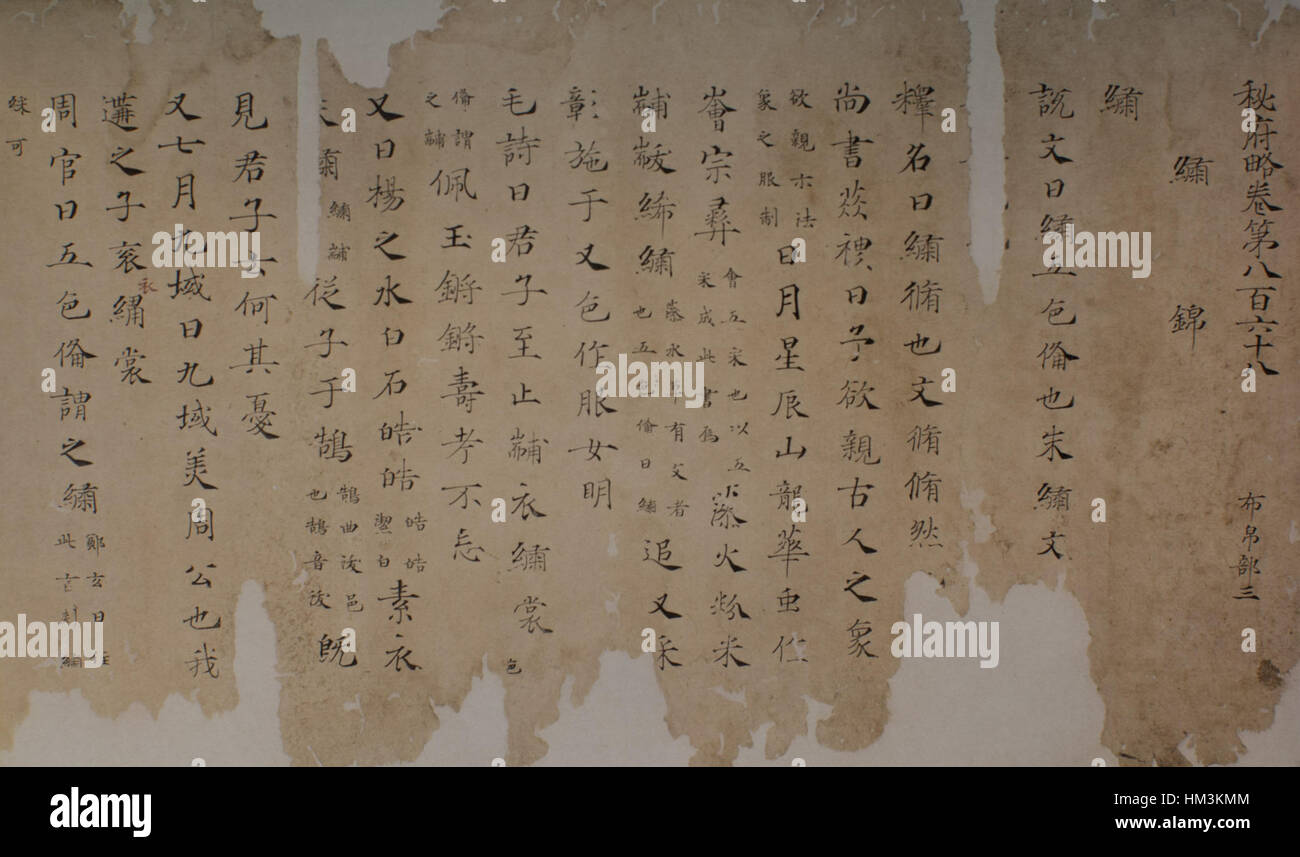 秘府略巻第八百六十八 布帛部三
繡 錦
繡
說文曰繡五色俻也朱繡文
釋名曰繡脩也文脩脩然
尚書益稷曰予欲親古人之象
欲親示法
象之服制
日月星辰山龍華虫
會宗彛
會五采也以五
采成此畫爲
藻火粉米
黼黻絺繡
有文者
也五色俻曰繡
追又采
彰施于又色作服女明
毛詩曰君子至止黼衣繡裳 色
俻謂
之黼
佩玉鏘鏘壽考不忘
又曰楊之水白石皓皓
皓皓
潔白
素衣
朱繡
繡黼
從子于鵠
鵠曲沃邑
也鵠音沃
既
見君子云何其憂
又七月九域曰九域美周公也我
遘之子衮繡裳
衣
周官曰五色俻謂之繡
鄭玄曰
此言刺繡
采可
alamy stock photo
HM3KMM
www.alamy.com